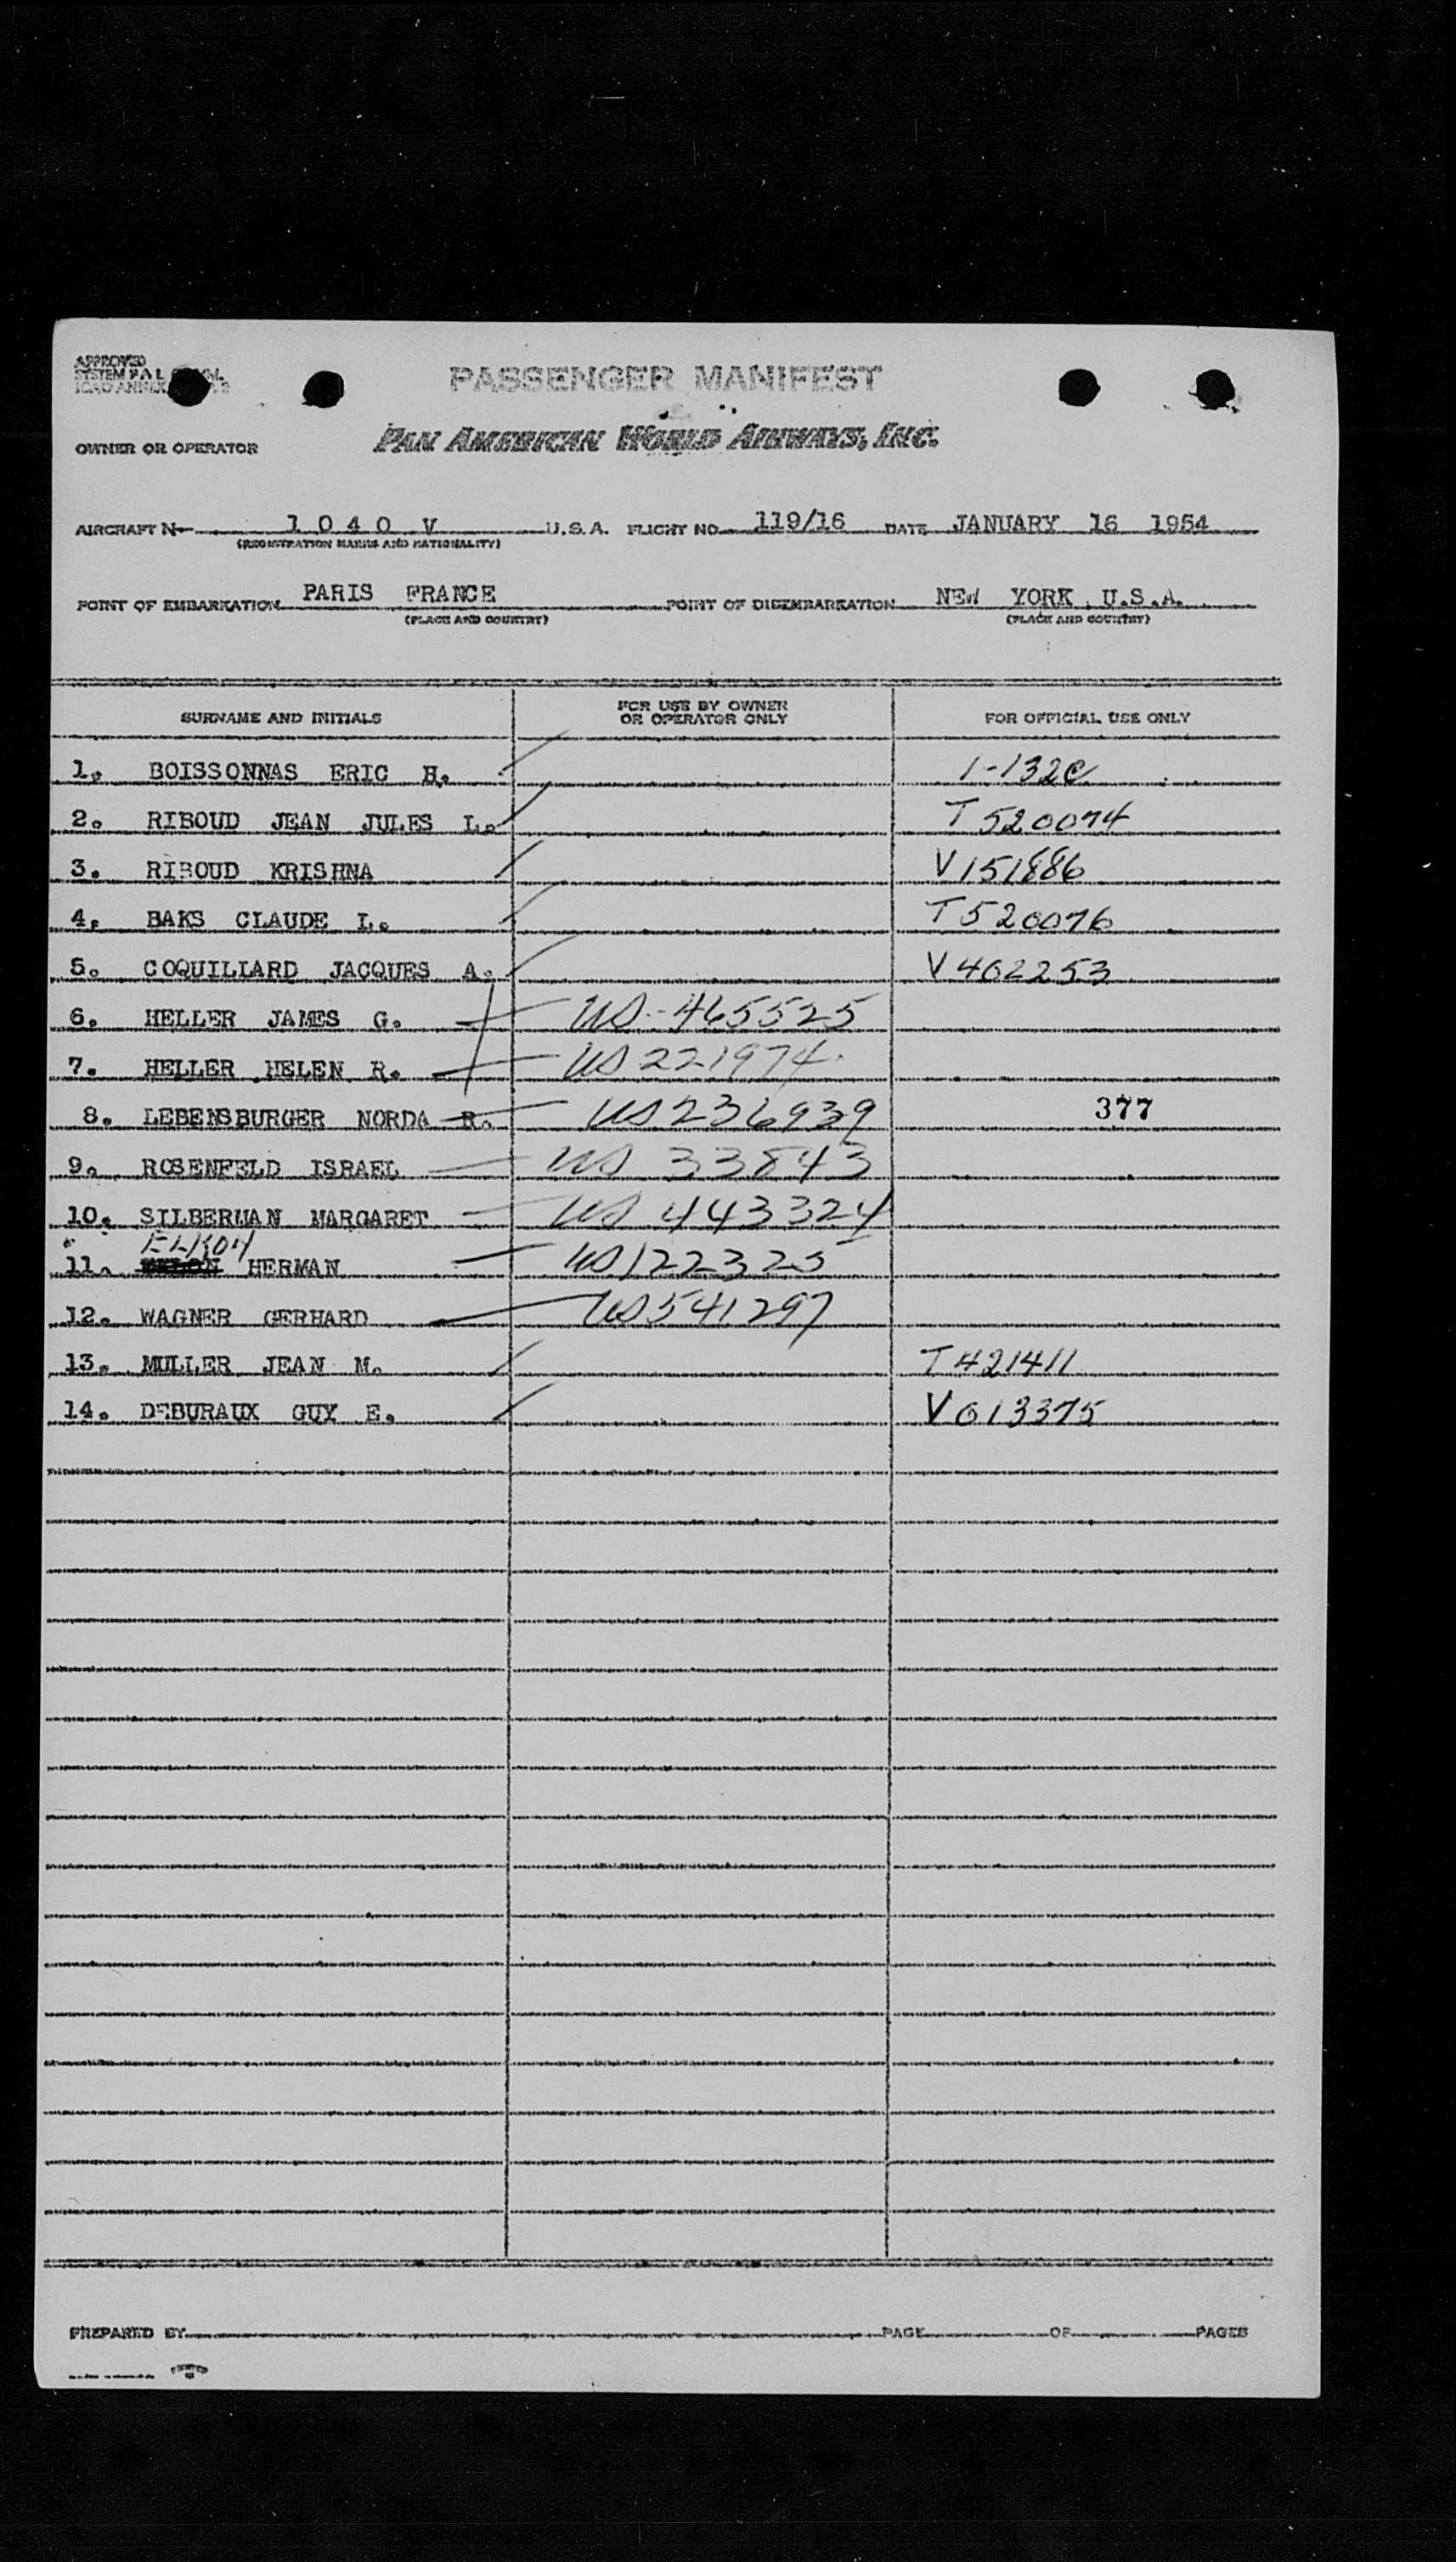 APPROVED
PASSENGER MANIFEST
OWNER OR OPERATOR PAN AMERICAN WORLD AIRWAYS, INC.
AIRCRAFT N- 1 0 4 0 V U.S.A. FLIGHT NO. 119/16 DATE JANUARY 16 1954
(REGISTRATION MARKS AND NATIONALITY)
POINT OF EMBARKATION PARIS FRANCE POINT OF DISEMBARKATION NEW YORK U.S.A.
(PLACE AND COUNTRY) (PLACE AND COUNTRY)
SURNAME AND INITIALS FOR USE BY OWNER OR OPERATOR ONLY FOR OFFICIAL USE ONLY
1. BOISSONNAS ERIC H. 1-132C
2. RIBOUD JEAN JULES L. T 520074
3. RIBOUD KRISHNA V151886
4. BAKS CLAUDE L. T520076
5. COQUILLARD JACQUES A. V462253
6. HELLER JAMES G. US-465525
7. HELLER HELEN R. US 221974
8. LEBENSBURGER NORDA R. US236939 377
9. ROSENFELD ISRAEL US 33843
10. SILBERMAN MARGARET US 443324
ELKON
11. HERMAN US122325
12. WAGNER GERHARD US541297
13. MULLER JEAN M. T421411
14. DEBURAUX GUY E. V613375
PREPARED BY PAGE OF PAGES